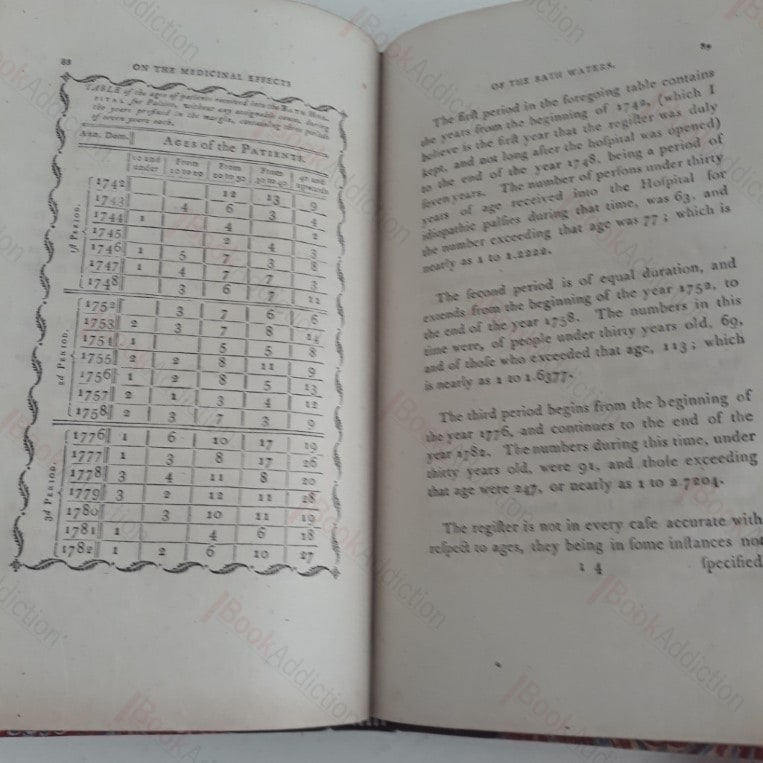 88
ON THE MEDICINAL EFFECTS
TABLE of the ages of patients received into the BATH HOS-
PITAL for Palsies, without any assignable cause, during
the years prefixed in the margin, containing three periods
of seven years each.
Ann. Dom. AGES of the PATIENTS.
10 and under From 10 to 20 From 20 to 30 From 30 to 40 40 and upwards
1st PERIOD.
1742 12 13 9
1743 4 6 3 4
1744 1 4 2
1745 2 4 3
1746 1 5 7 3 8
1747 1 4 7 7 3
1748 3 6 7 11
2d PERIOD.
1752 3 7 6 6
1753 2 3 7 8 14
1754 1 5 5 8
1755 2 2 8 11 9
1756 1 2 8 5 13
1757 2 1 3 4 12
1758 2 3 7 3 9
3d PERIOD.
1776 1 6 10 17 19
1777 1 3 8 17 26
1778 3 4 11 8 20
1779 3 2 12 11 28
1780 3 10 11 19
1781 1 4 6 18
1782 1 2 6 10 27
89
OF THE BATH WATERS.
The firſt period in the foregoing table contains
the years from the beginning of 1742, (which I
believe is the firſt year that the regiſter was duly
kept, and not long after the hoſpital was opened)
to the end of the year 1748, being a period of
ſeven years. The number of perſons under thirty
years of age received into the Hoſpital for
idiopathic palſies during that time, was 63, and
the number exceeding that age was 77; which is
nearly as 1 to 1.2222.
The ſecond period is of equal duration, and
extends from the beginning of the year 1752, to
the end of the year 1758. The numbers in this
time were, of people under thirty years old, 69,
and of thoſe who exceeded that age, 113; which
is nearly as 1 to 1.6377.
The third period begins from the beginning of
the year 1776, and continues to the end of the
year 1782. The numbers during this time, under
thirty years old, were 91, and thoſe exceeding
that age were 247, or nearly as 1 to 2.7204.
The regiſter is not in every caſe accurate with
reſpect to ages, they being in ſome inſtances not
I 4 ſpecified
BookAddiction